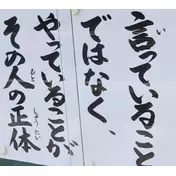 言っていること
ではなく、
やっていることが
その人の正体
ひと
しょうたい